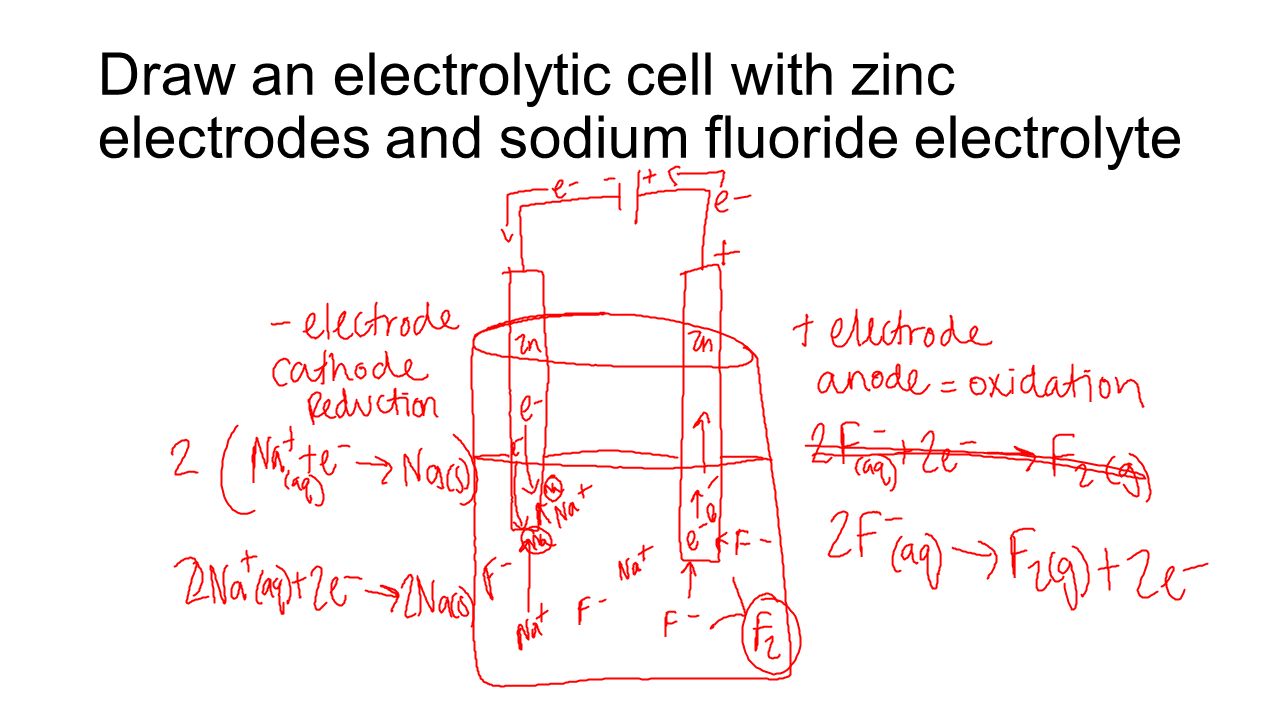 Draw an electrolytic cell with zinc
electrodes and sodium fluoride electrolyte
e- - + e-
+
- electrode
cathode
Reduction
2 (Na+(aq) + e- → Na(s))
2Na+(aq) + 2e- → 2Na(s)
Zn
Zn
e-
e-
Na
Na+
Na
e-
e-
F-
F-
Na+
F-
Na+
F-
F2
+ electrode
anode = oxidation
2F-(aq) + 2e- → F2(g)
2F-(aq) → F2(g) + 2e-